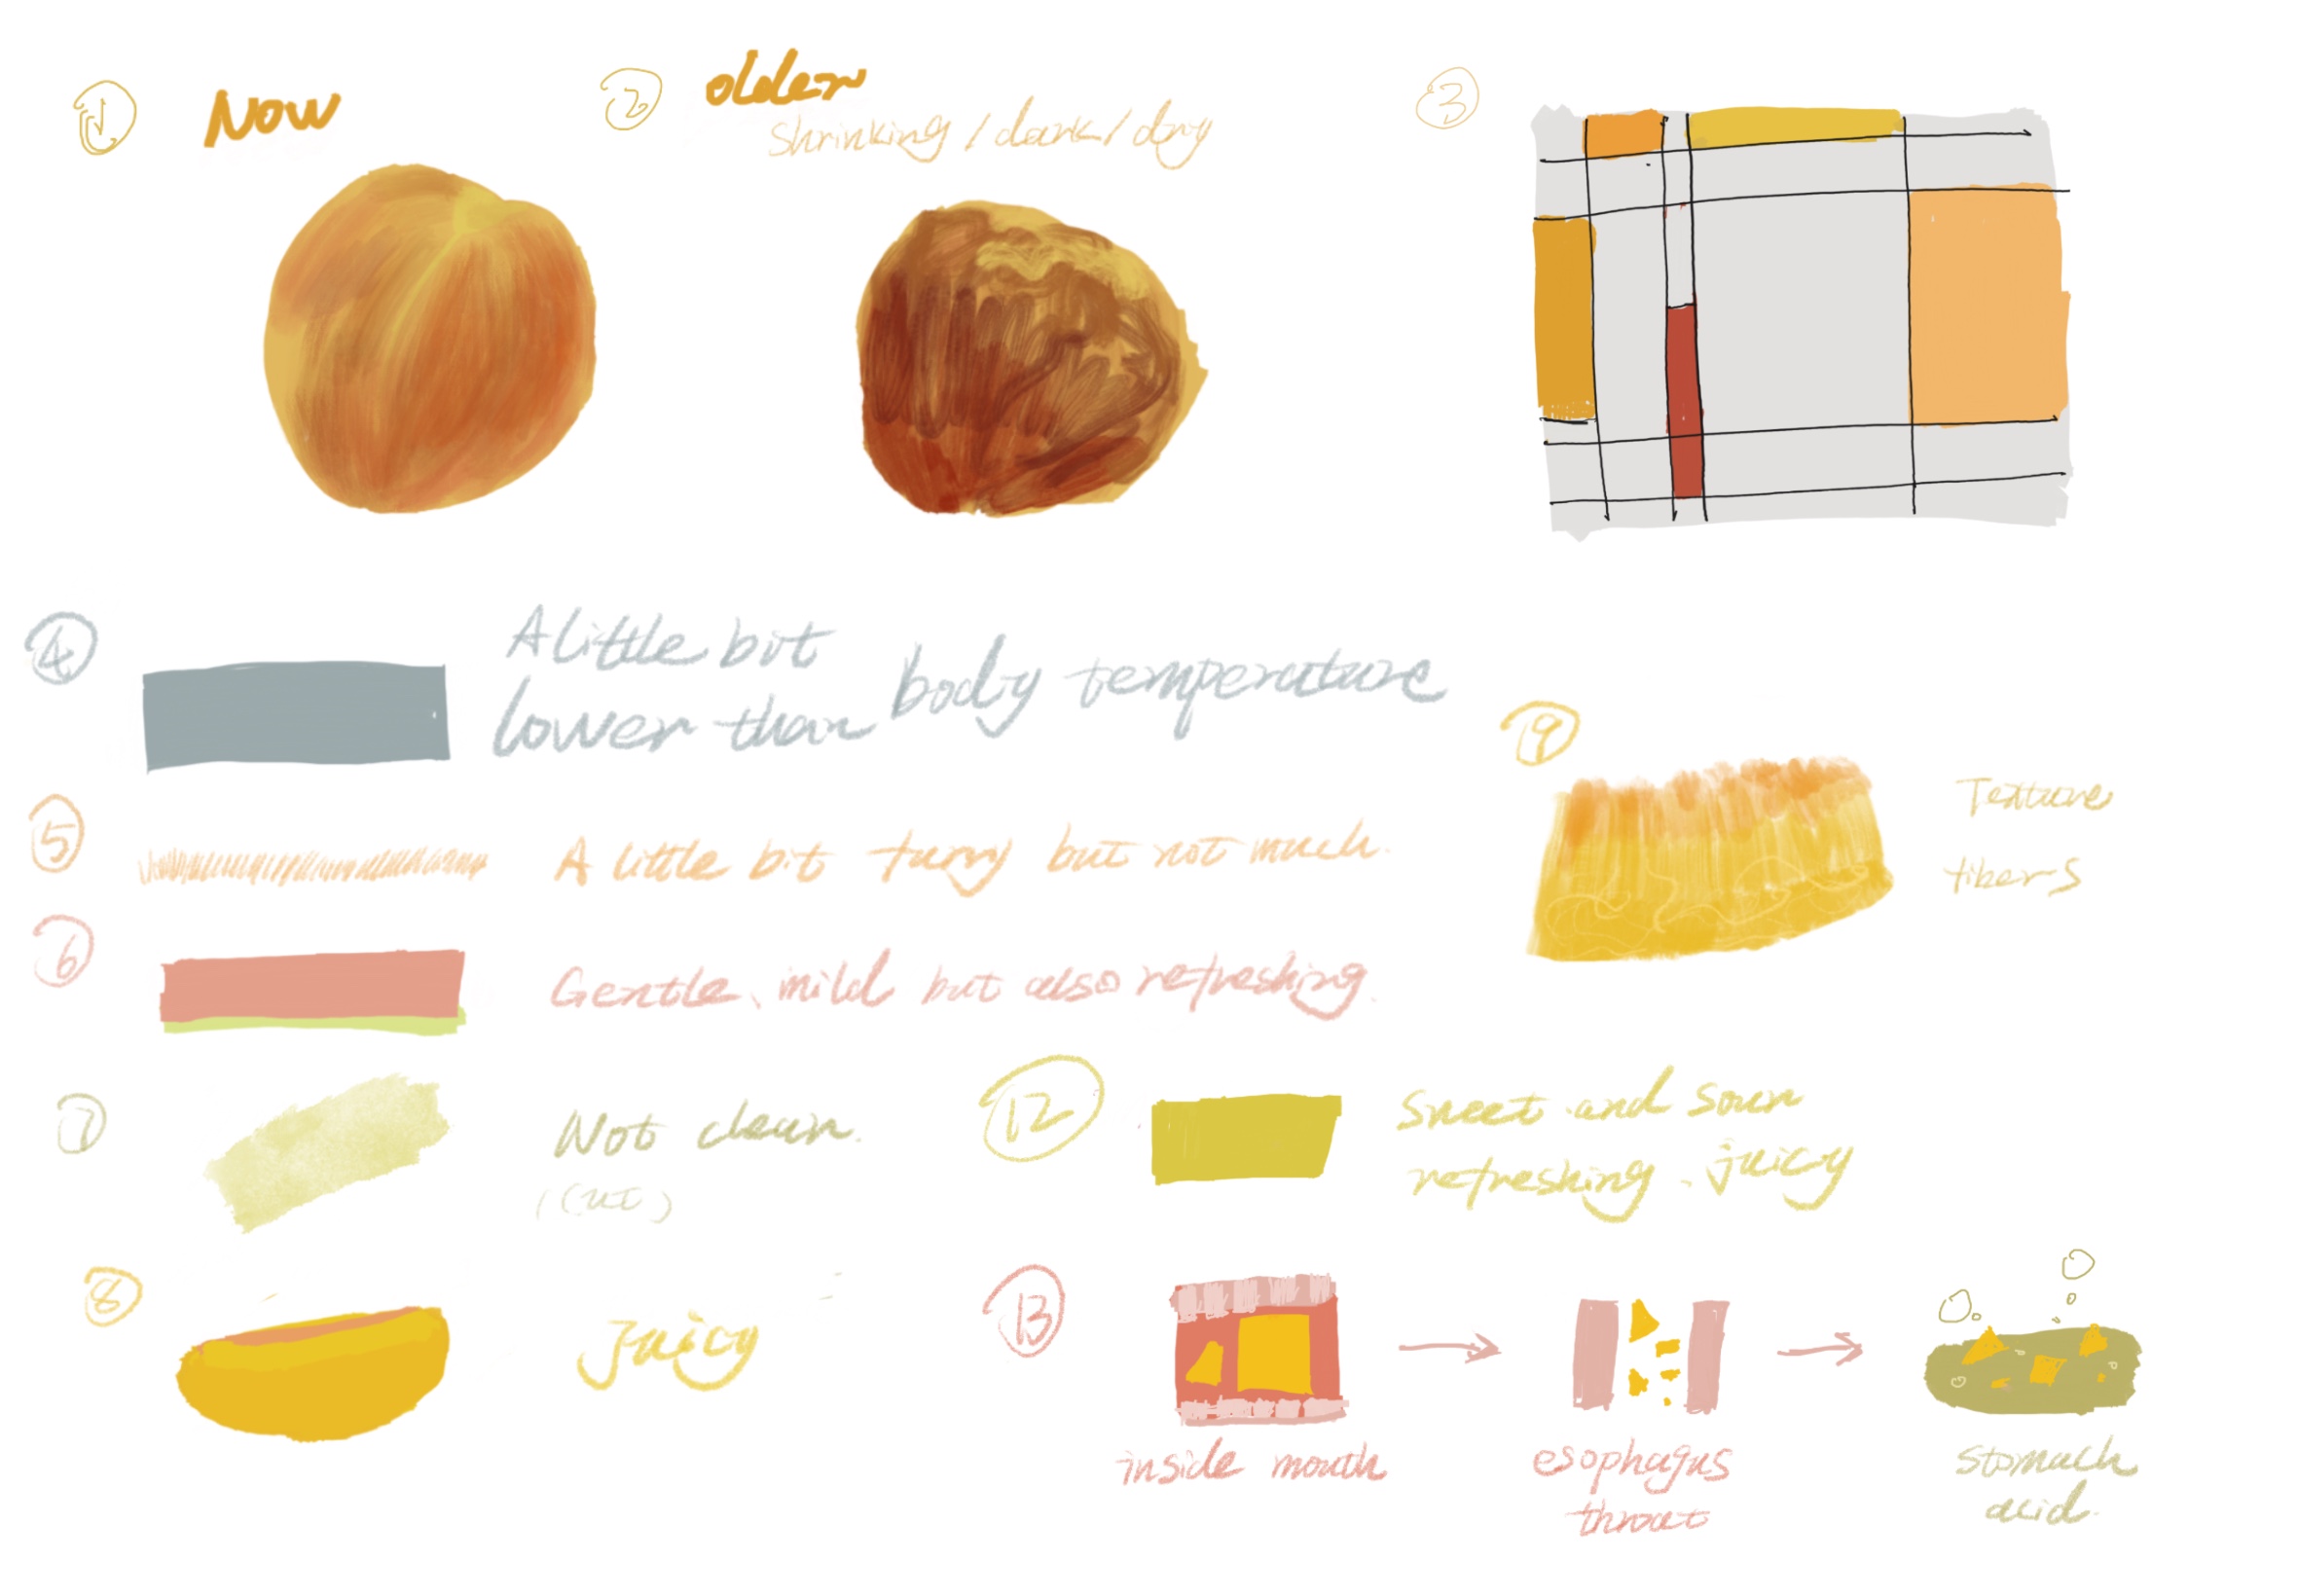 ① Now
② older
shrinking / dark / dry
③
④ A little bit
lower than body temperature
⑤ A little bit furry but not much.
⑥ Gentle、mild but also refreshing.
⑦ Not clean.
(cut)
⑧ Juicy
⑨ Texture
fibers
⑫ Sweet and sour
refreshing、juicy
⑬
inside mouth
esophagus
throat
stomach
acid.